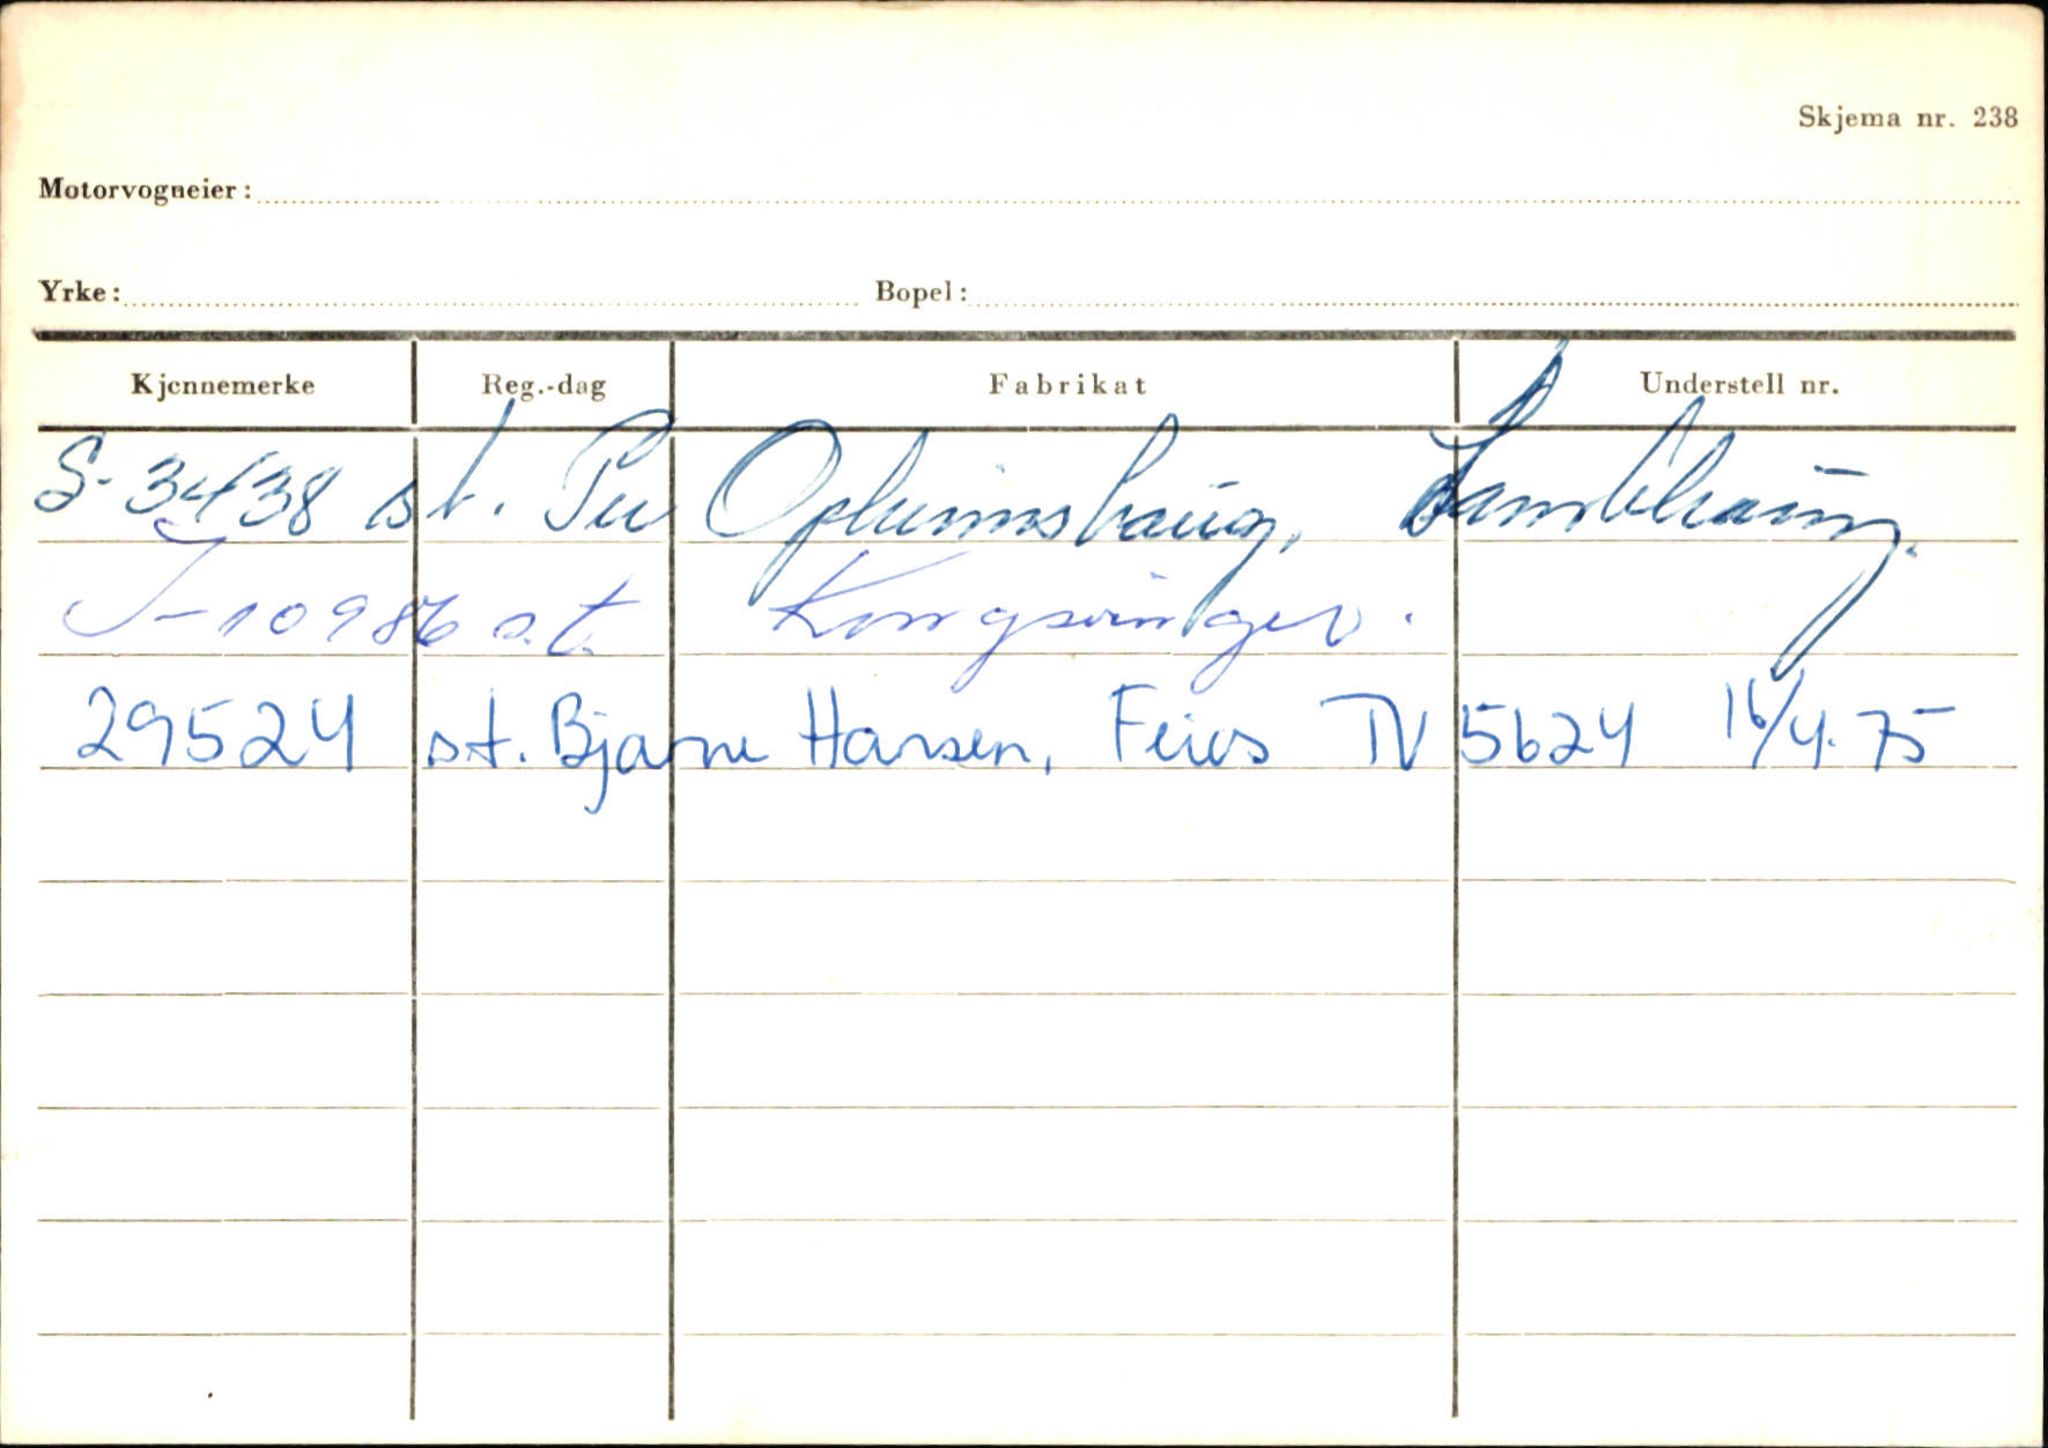 Skjema nr. 238
Motorvogneier:
Yrke: Bopel:
Kjennemerke Reg.-dag Fabrikat Understell nr.
S-3438 st. Per Opheimshaug,
J-10986 s.t. Kongsvinger.
29524 st. Bjarne Hansen, Feios TV 5624 16/4.75